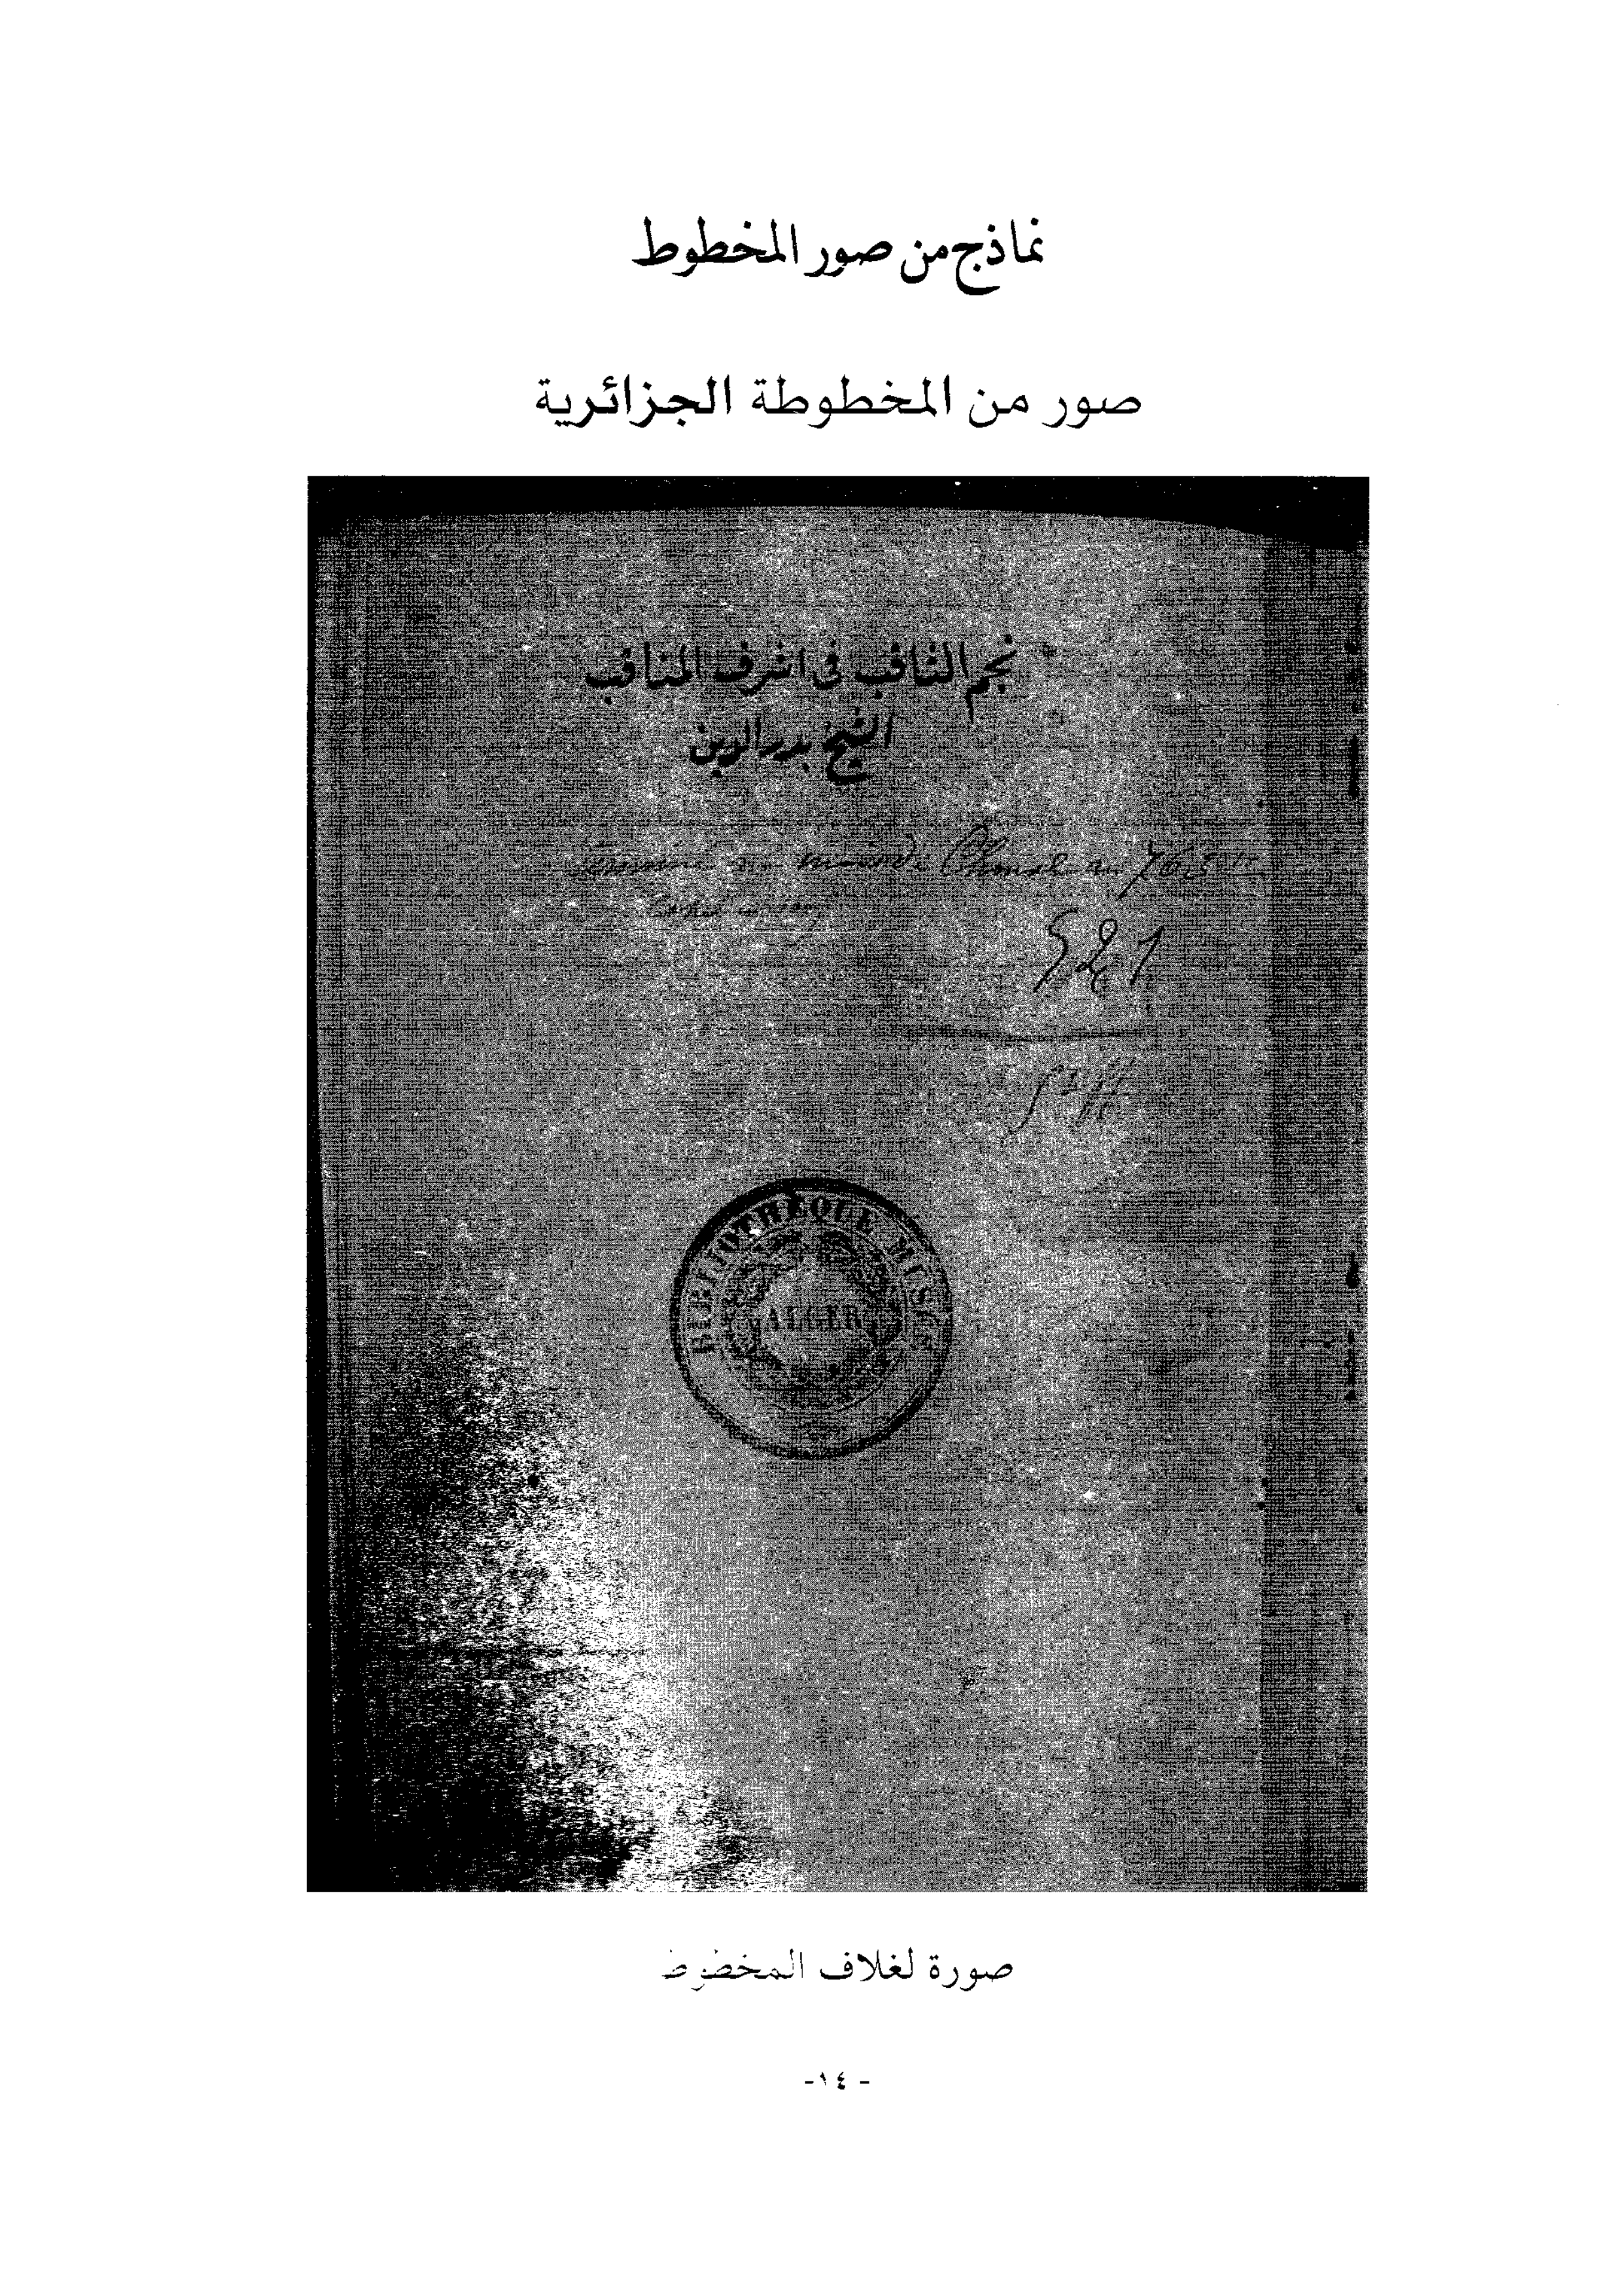 نماذج من صور المخطوط
صور من المخطوطة الجزائرية
نجم الثاقب في اشرف المناقب
الشيخ بدر الدين
521
BIBLIOTHEQUE MUSÉE
ALGER
صورة لغلاف المخطوط
- ١٤ -